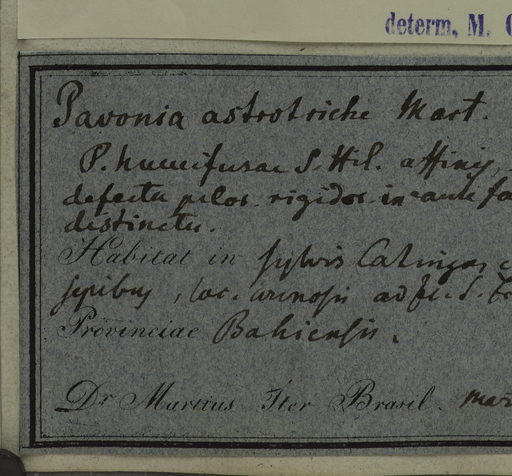 determ, M.
Pavonia astrotriche Mart.
P. humifusae S. Hil. affinis,
defectu pilos. rigidos. in caule
distincta.
Habitat in sylvis Catingas
sepibus, loc. arenosis ad fl. S.
Provinciae Bahiensis.
Dr Martius Iter Brasil.